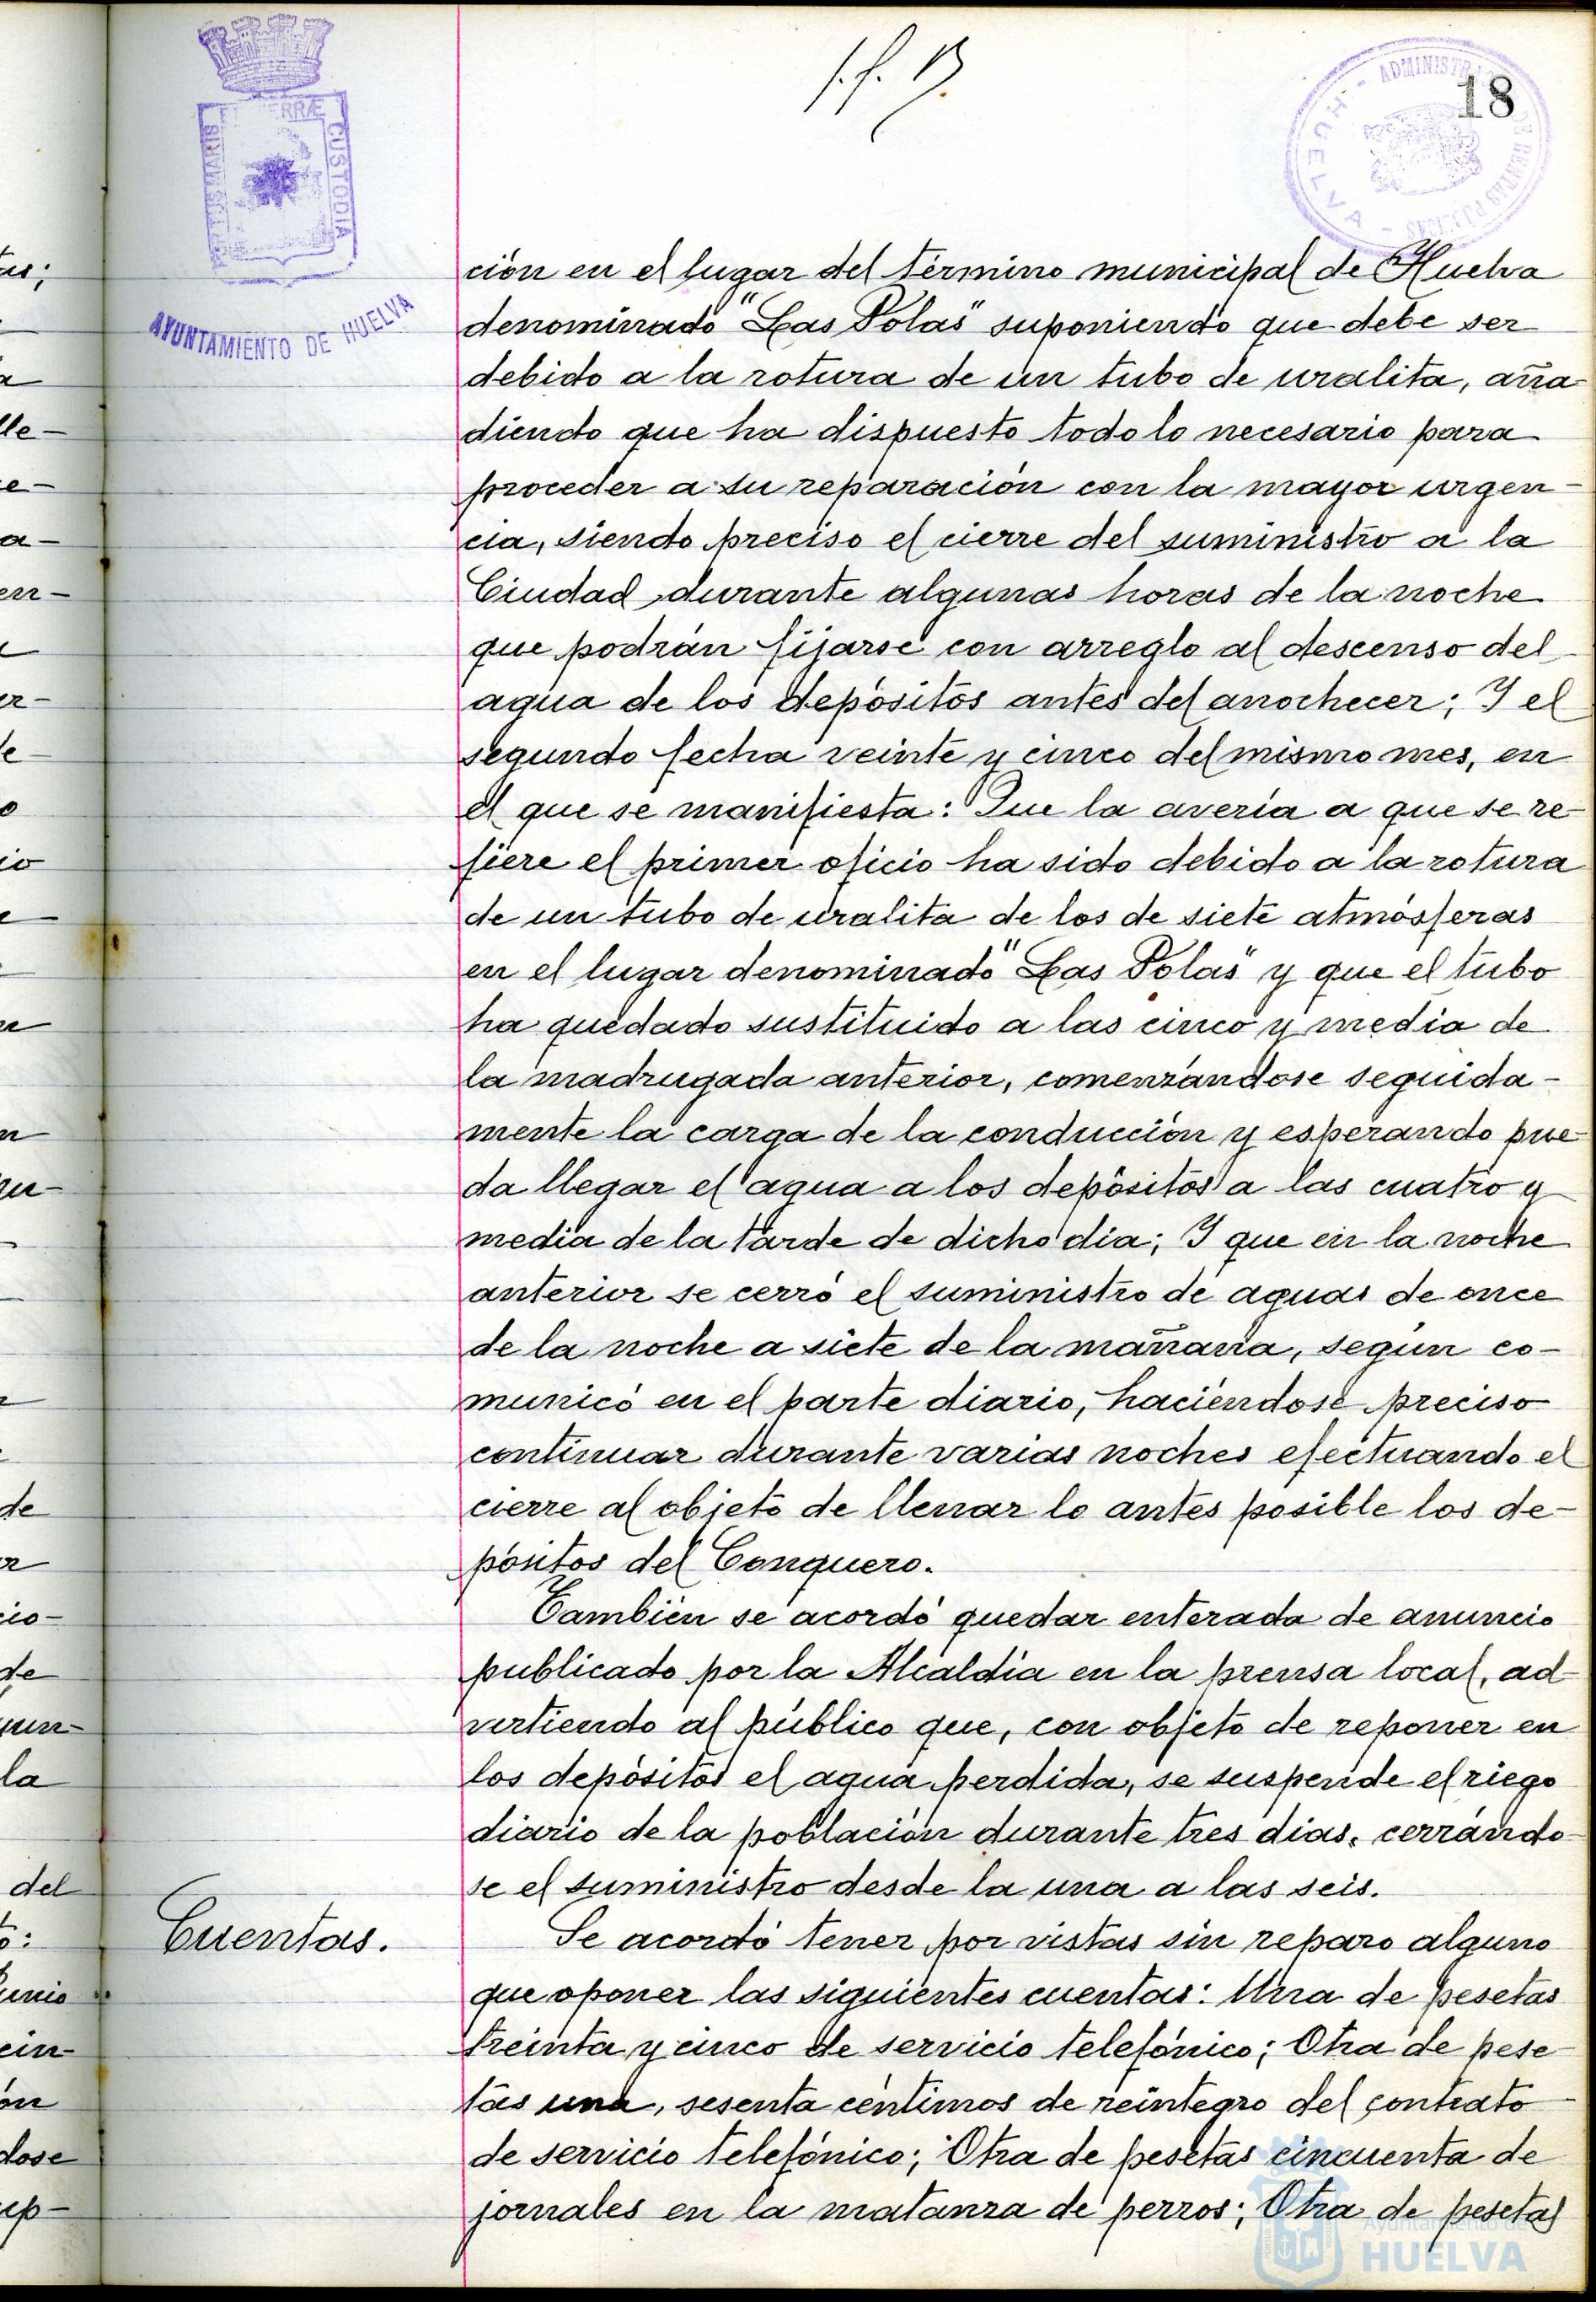 18
ADMINISTRA
HUELVA
CUSTODIA
AYUNTAMIENTO DE HUELVA
ción en el lugar del término municipal de Huelva
denominado "Las Polas" suponiendo que debe ser
debido a la rotura de un tubo de uralita, aña
diendo que ha dispuesto todo lo necesario para
proceder a su reparación con la mayor urgen-
cia, siendo preciso el cierre del suministro a la
Ciudad, durante algunas horas de la noche
que podrán fijarse con arreglo al descenso del
agua de los depósitos antes del anochecer; Y el
segundo fecha veinte y cinco del mismo mes, en
el que se manifiesta: Que la avería a que se re-
fiere el primer oficio ha sido debido a la rotura
de un tubo de uralita de los de siete atmósferas
en el lugar denominado "Las Polas" y que el tubo
ha quedado sustituido a las cinco y media de
la madrugada anterior, comenzándose seguida-
mente la carga de la conducción y esperando pue-
da llegar el agua a los depósitos a las cuatro y
media de la tarde de dicho día; Y que en la noche
anterior se cerró el suministro de aguas de once
de la noche a siete de la mañana, según co-
municó en el parte diario, haciéndose preciso
continuar durante varias noches efectuando el
cierre al objeto de llenar lo antes posible los de-
pósitos del Conquero.
También se acordó quedar enterada de anuncio
publicado por la Alcaldía en la prensa local, ad-
virtiendo al público que, con objeto de reponer en
los depósitos el agua perdida, se suspende el riego
diario de la población durante tres días, cerrándo-
se el suministro desde la una a las seis.
Cuentas.
Se acordó tener por vistas sin reparo alguno
que oponer las siguientes cuentas: Una de pesetas
treinta y cinco de servicio telefónico; Otra de pese-
tas una, sesenta céntimos de reintegro del contrato
de servicio telefónico; Otra de pesetas cincuenta de
jornales en la matanza de perros; Otra de pesetas
Ayuntamiento de
HUELVA